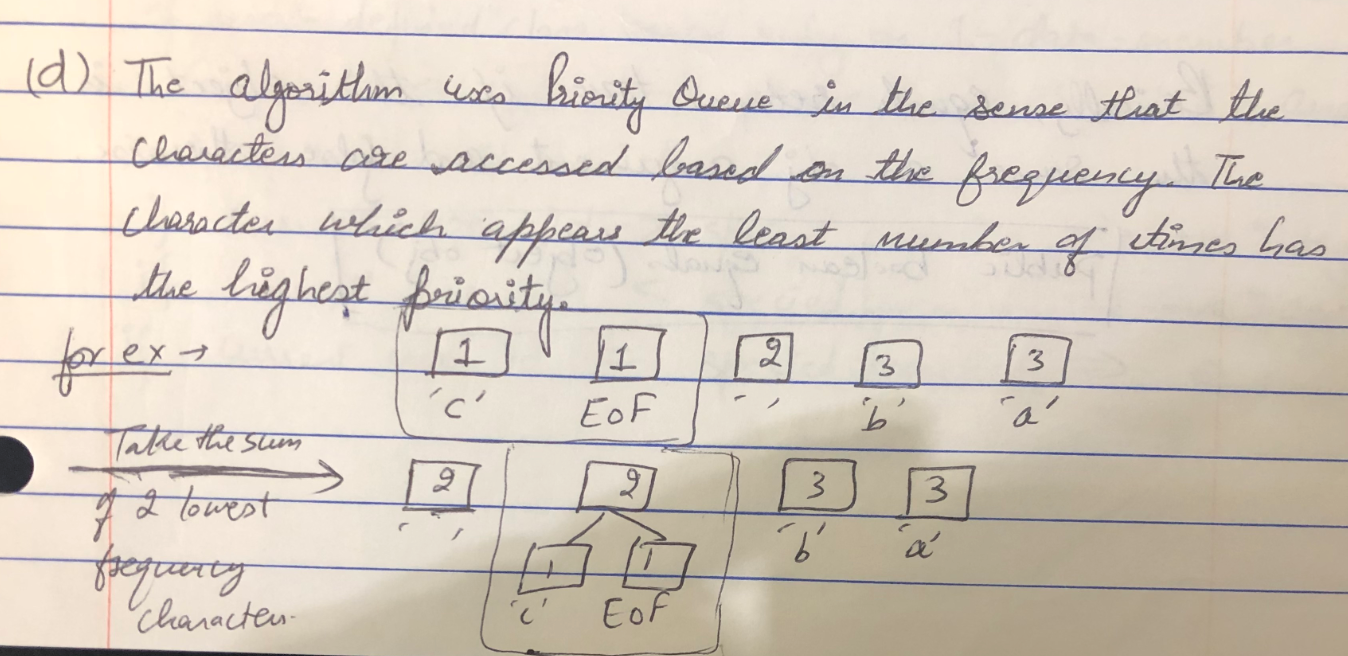 (d) The algorithm uses Priority Queue in the sense that the
characters are accessed based on the frequency. The
character which appears the least number of times has
the highest priority.
for ex → 1 1 2 3 3
'c' EOF ' ' 'b' 'a'
Take the sum
of 2 lowest
frequency
characters.
2 2 3 3
' ' 'b' 'a'
1 1
'c' EOF